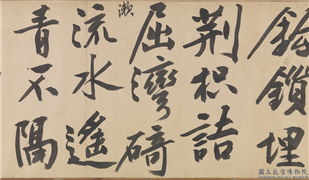 鈎鎖埋
荊枳詰
屈灣碕
流水遙
青不隔
國立故宮博物院
NATIONAL PALACE MUSEUM